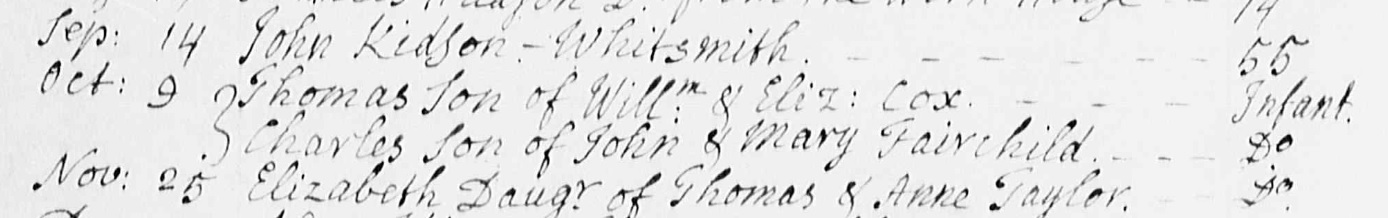 from the Work House - - 74
Sep: 14 John Kidson - Whitsmith. - - - - - - 55
Oct: 9 } Thomas Son of Will:m & Eliz: Cox. - - - Infant.
Charles Son of John & Mary Fairchild. - - - Do
Nov: 25 Elizabeth Daugr. of Thomas & Anne Taylor. - - Do.